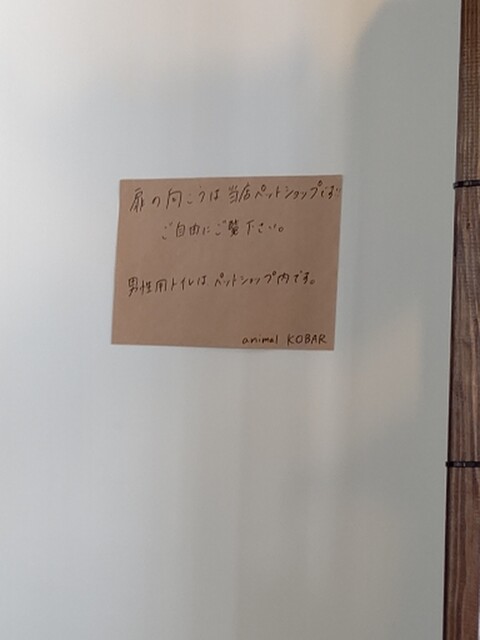 扉の向こうは当店ペットショップです
ご自由にご覧下さい。
男性用トイレはペットショップ内です。
animal KOBAR